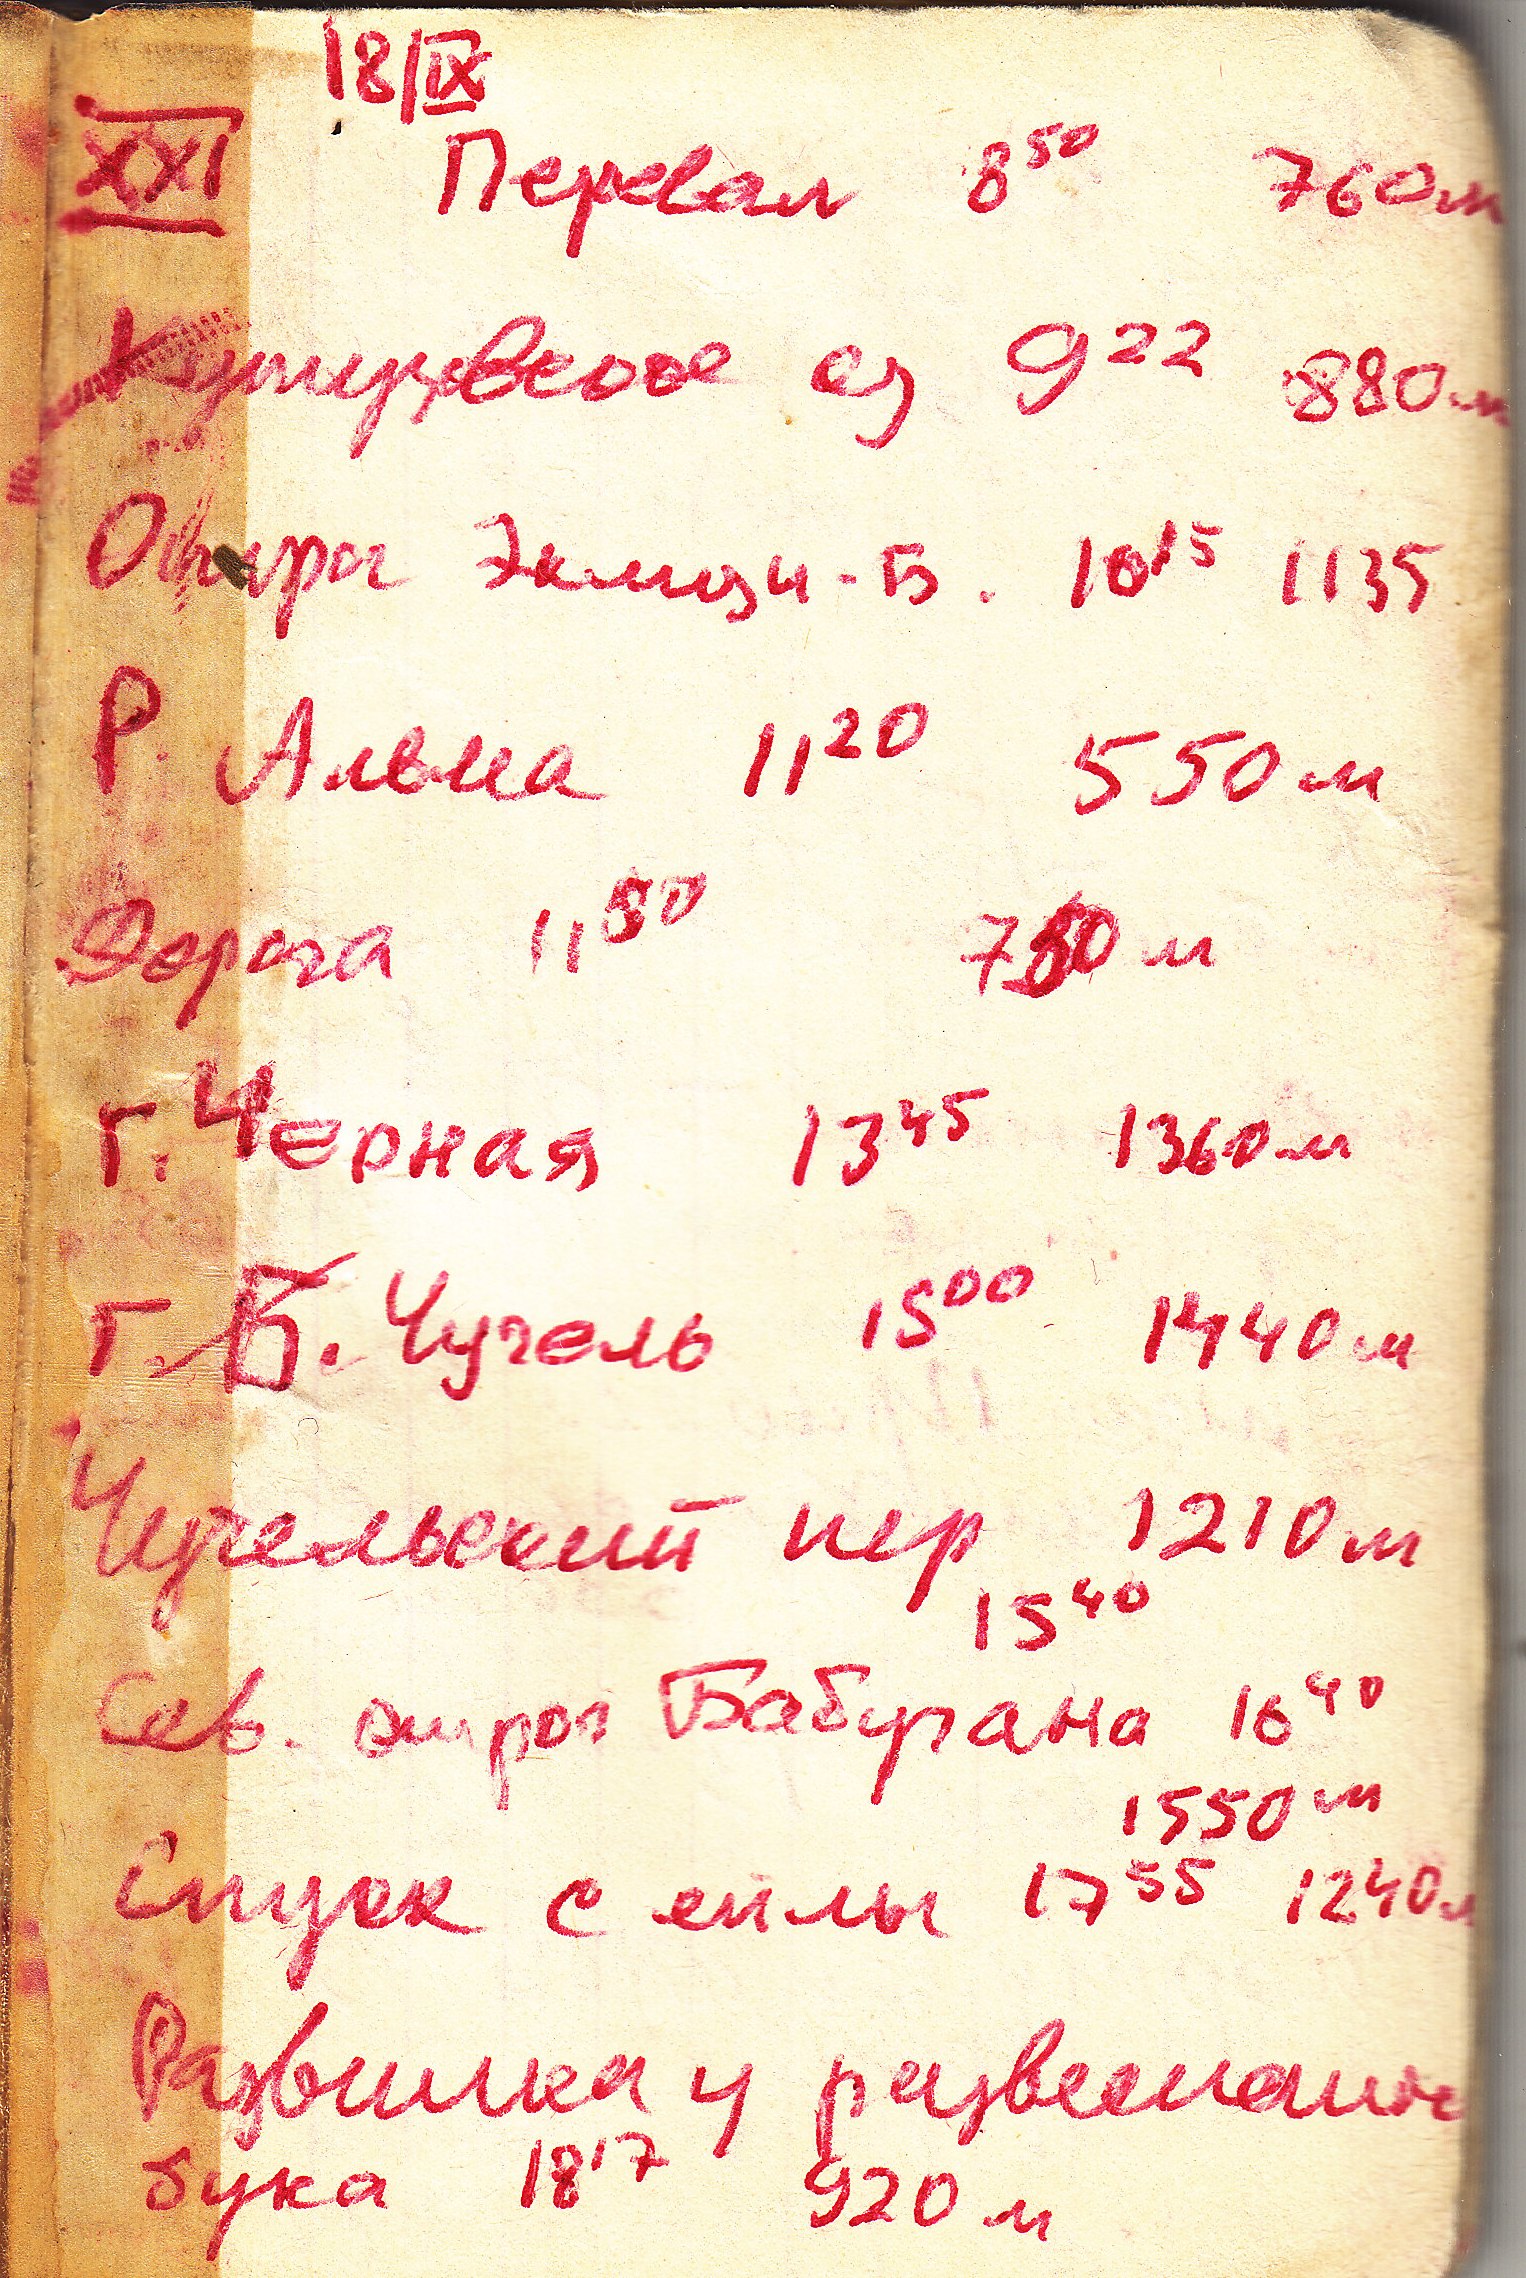 18/IX
XXI Перевал 8⁵⁰ 760м
Кутузовское оз 9²² 880м
Отрог Экмези-Б. 10¹⁵ 1135
Р. Альма 11²⁰ 550м
Дорога 11⁵⁰ 750м
г. Черная 13⁴⁵ 1360м
г. Б. Чучель 15⁰⁰ 1440м
Чучельский пер 1210м
15⁴⁰
Сев. отрог Бабугана 16⁴⁰
1550м
Спуск с яйлы 17⁵⁵ 1240м
Развилка у развесистого
бука 18¹⁷ 920м